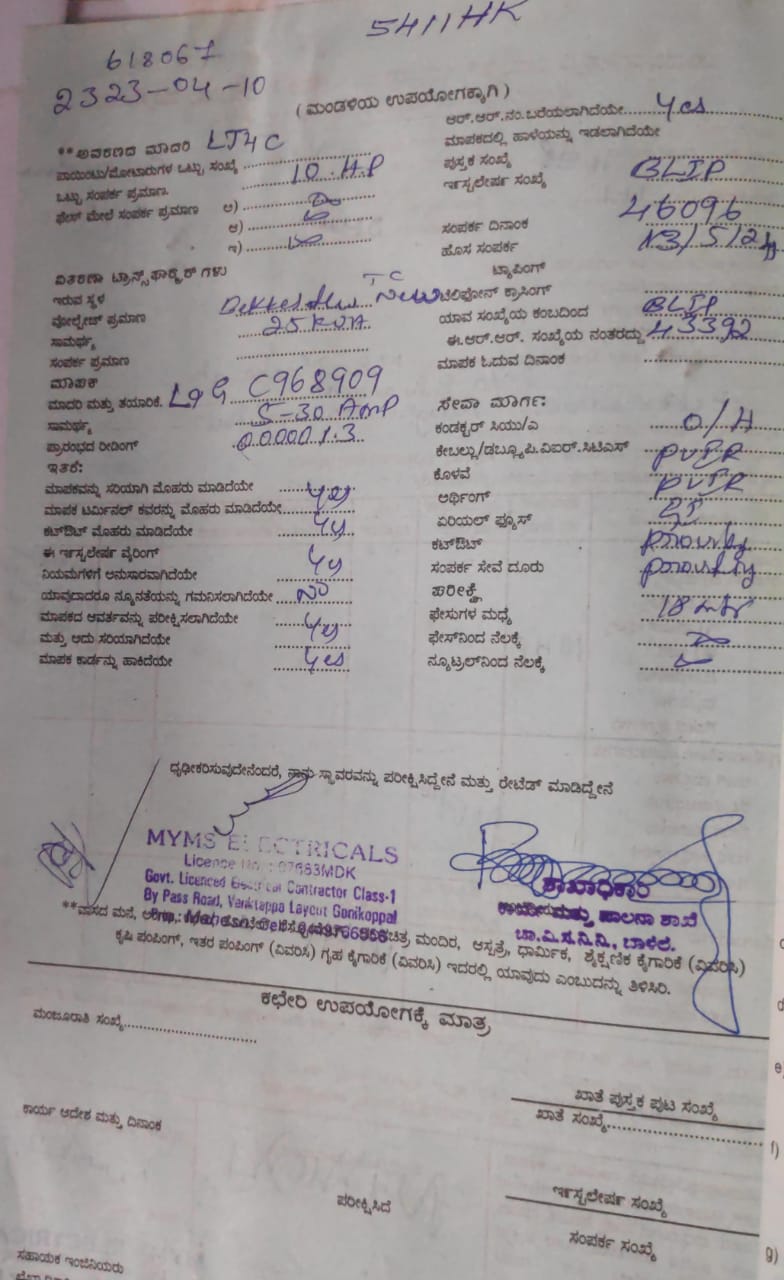 5411HK
618067
2323-04-10
( ಮಂಡಳಿಯ ಉಪಯೋಗಕ್ಕಾಗಿ )
**ಅವಕರಣದ ಮಾದರಿ LT4C
ಪಾಯಿಂಟು/ಮೋಟಾರುಗಳ ಒಟ್ಟು ಸಂಖ್ಯೆ
ಒಟ್ಟು ಸಂಪರ್ಕ ಪ್ರಮಾಣ. 10 HP
ಫೇಸ್ ಮೇಲೆ ಸಂಪರ್ಕ ಪ್ರಮಾಣ ಅ)
ಆ)
ಇ)
ವಿತರಣಾ ಟ್ರಾನ್ಸ್‌ಫಾರ್ಮರ್‌ಗಳು
ಇರುವ ಸ್ಥಳ TC New
ವೋಲ್ಟೇಜ್ ಪ್ರಮಾಣ 25 KVA
ಸಾಮರ್ಥ್ಯ
ಸಂಪರ್ಕ ಪ್ರಮಾಣ
ಮಾಪಕ
ಮಾದರಿ ಮತ್ತು ತಯಾರಿಕೆ. L&G C968909
ಸಾಮರ್ಥ್ಯ 5-30 Amp
ಪ್ರಾರಂಭದ ರೀಡಿಂಗ್ 000001.3
ಇತರೆ:
ಮಾಪಕವನ್ನು ಸರಿಯಾಗಿ ಮೊಹರು ಮಾಡಿದೆಯೇ Yes
ಮಾಪಕ ಟರ್ಮಿನಲ್ ಕವರನ್ನು ಮೊಹರು ಮಾಡಿದೆಯೇ
ಕಟ್‌ಔಟ್ ಮೊಹರು ಮಾಡಿದೆಯೇ Yes
ಈ ಇನ್ಸ್ಟಲೇಷನ್ ವೈರಿಂಗ್
ನಿಯಮಗಳಿಗೆ ಅನುಸಾರವಾಗಿದೆಯೇ Yes
ಯಾವುದಾದರೂ ನ್ಯೂನತೆಯನ್ನು ಗಮನಿಸಲಾಗಿದೆಯೇ No
ಮಾಪಕದ ಆವರ್ತವನ್ನು ಪರೀಕ್ಷಿಸಲಾಗಿದೆಯೇ
ಮತ್ತು ಅದು ಸರಿಯಾಗಿದೆಯೇ Yes
ಮಾಪಕ ಕಾರ್ಡನ್ನು ಹಾಕಿದೆಯೇ Yes
ಆರ್.ಆರ್.ನಂ.ಬರೆಯಲಾಗಿದೆಯೇ Yes
ಮಾಪಕದಲ್ಲಿ ಹಾಳೆಯನ್ನು ಇಡಲಾಗಿದೆಯೇ
ಪುಸ್ತಕ ಸಂಖ್ಯೆ
ಇನ್ಸ್ಟಲೇಷನ್ ಸಂಖ್ಯೆ BLIP
46096
ಸಂಪರ್ಕ ದಿನಾಂಕ
ಹೊಸ ಸಂಪರ್ಕ
ಟ್ಯಾಪಿಂಗ್
ಟೆಲಿಫೋನ್ ಕ್ರಾಸಿಂಗ್
ಯಾವ ಸಂಖ್ಯೆಯ ಕಂಬದಿಂದ BLIP
ಈ.ಆರ್.ಆರ್. ಸಂಖ್ಯೆಯ ನಂತರದ್ದು 43392
ಮಾಪಕ ಓದುವ ದಿನಾಂಕ
ಸೇವಾ ಮಾರ್ಗ:
ಕಂಡಕ್ಟರ್ ಸಿಯು/ಎ O/H
ಕೇಬಲ್ಲು/ಡಬ್ಲ್ಯೂ.ಪಿ.ವಿಐಆರ್.ಸಿಟಿಎಸ್
ಕೊಳವೆ
ಅರ್ಥಿಂಗ್
ಏರಿಯಲ್ ಫ್ಯೂಸ್
ಕಟ್‌ಔಟ್
ಸಂಪರ್ಕ ಸೇವೆ ದೂರು
ಪರೀಕ್ಷೆ
ಫೇಸುಗಳ ಮಧ್ಯೆ 18 mtr
ಫೇಸ್‌ನಿಂದ ನೆಲಕ್ಕೆ
ನ್ಯೂಟ್ರಲ್‌ನಿಂದ ನೆಲಕ್ಕೆ
ಧೃಢೀಕರಿಸುವುದೇನೆಂದರೆ, ನಾನು ಸ್ಥಾವರವನ್ನು ಪರೀಕ್ಷಿಸಿದ್ದೇನೆ ಮತ್ತು ರೇಟೆಡ್ ಮಾಡಿದ್ದೇನೆ
MYMS ELECTRICALS
Licence No. : 07663MDK
Govt. Licenced Electrical Contractor Class-1
By Pass Road, Venktappa Layout Gonikoppal
ಶಾಖಾಧಿಕಾರಿ
ಕಾರ್ಯ ಮತ್ತು ಪಾಲನಾ ಶಾಖೆ
ಚಾ.ವಿ.ಸ.ನಿ.ನಿ., ಬಾಳೆಲೆ.
**ವಾಸದ ಮನೆ, ಚಿತ್ರ ಮಂದಿರ, ಆಸ್ಪತ್ರೆ, ಧಾರ್ಮಿಕ, ಶೈಕ್ಷಣಿಕ ಕೈಗಾರಿಕೆ (ವಿವರಿಸಿ)
ಕೃಷಿ ಪಂಪಿಂಗ್, ಇತರ ಪಂಪಿಂಗ್ (ವಿವರಿಸಿ) ಗೃಹ ಕೈಗಾರಿಕೆ (ವಿವರಿಸಿ) ಇದರಲ್ಲಿ ಯಾವುದು ಎಂಬುದನ್ನು ತಿಳಿಸಿರಿ.
ಕಛೇರಿ ಉಪಯೋಗಕ್ಕೆ ಮಾತ್ರ
ಮಂಜೂರಾತಿ ಸಂಖ್ಯೆ
ಖಾತೆ ಪುಸ್ತಕ ಪುಟ ಸಂಖ್ಯೆ
ಖಾತೆ ಸಂಖ್ಯೆ
ಕಾರ್ಯ ಆದೇಶ ಮತ್ತು ದಿನಾಂಕ
ಇನ್ಸ್ಟಲೇಷನ್ ಸಂಖ್ಯೆ
ಪರೀಕ್ಷಿಸಿದೆ
ಸಂಪರ್ಕ ಸಂಖ್ಯೆ
ಸಹಾಯಕ ಇಂಜಿನಿಯರು
f)
g)